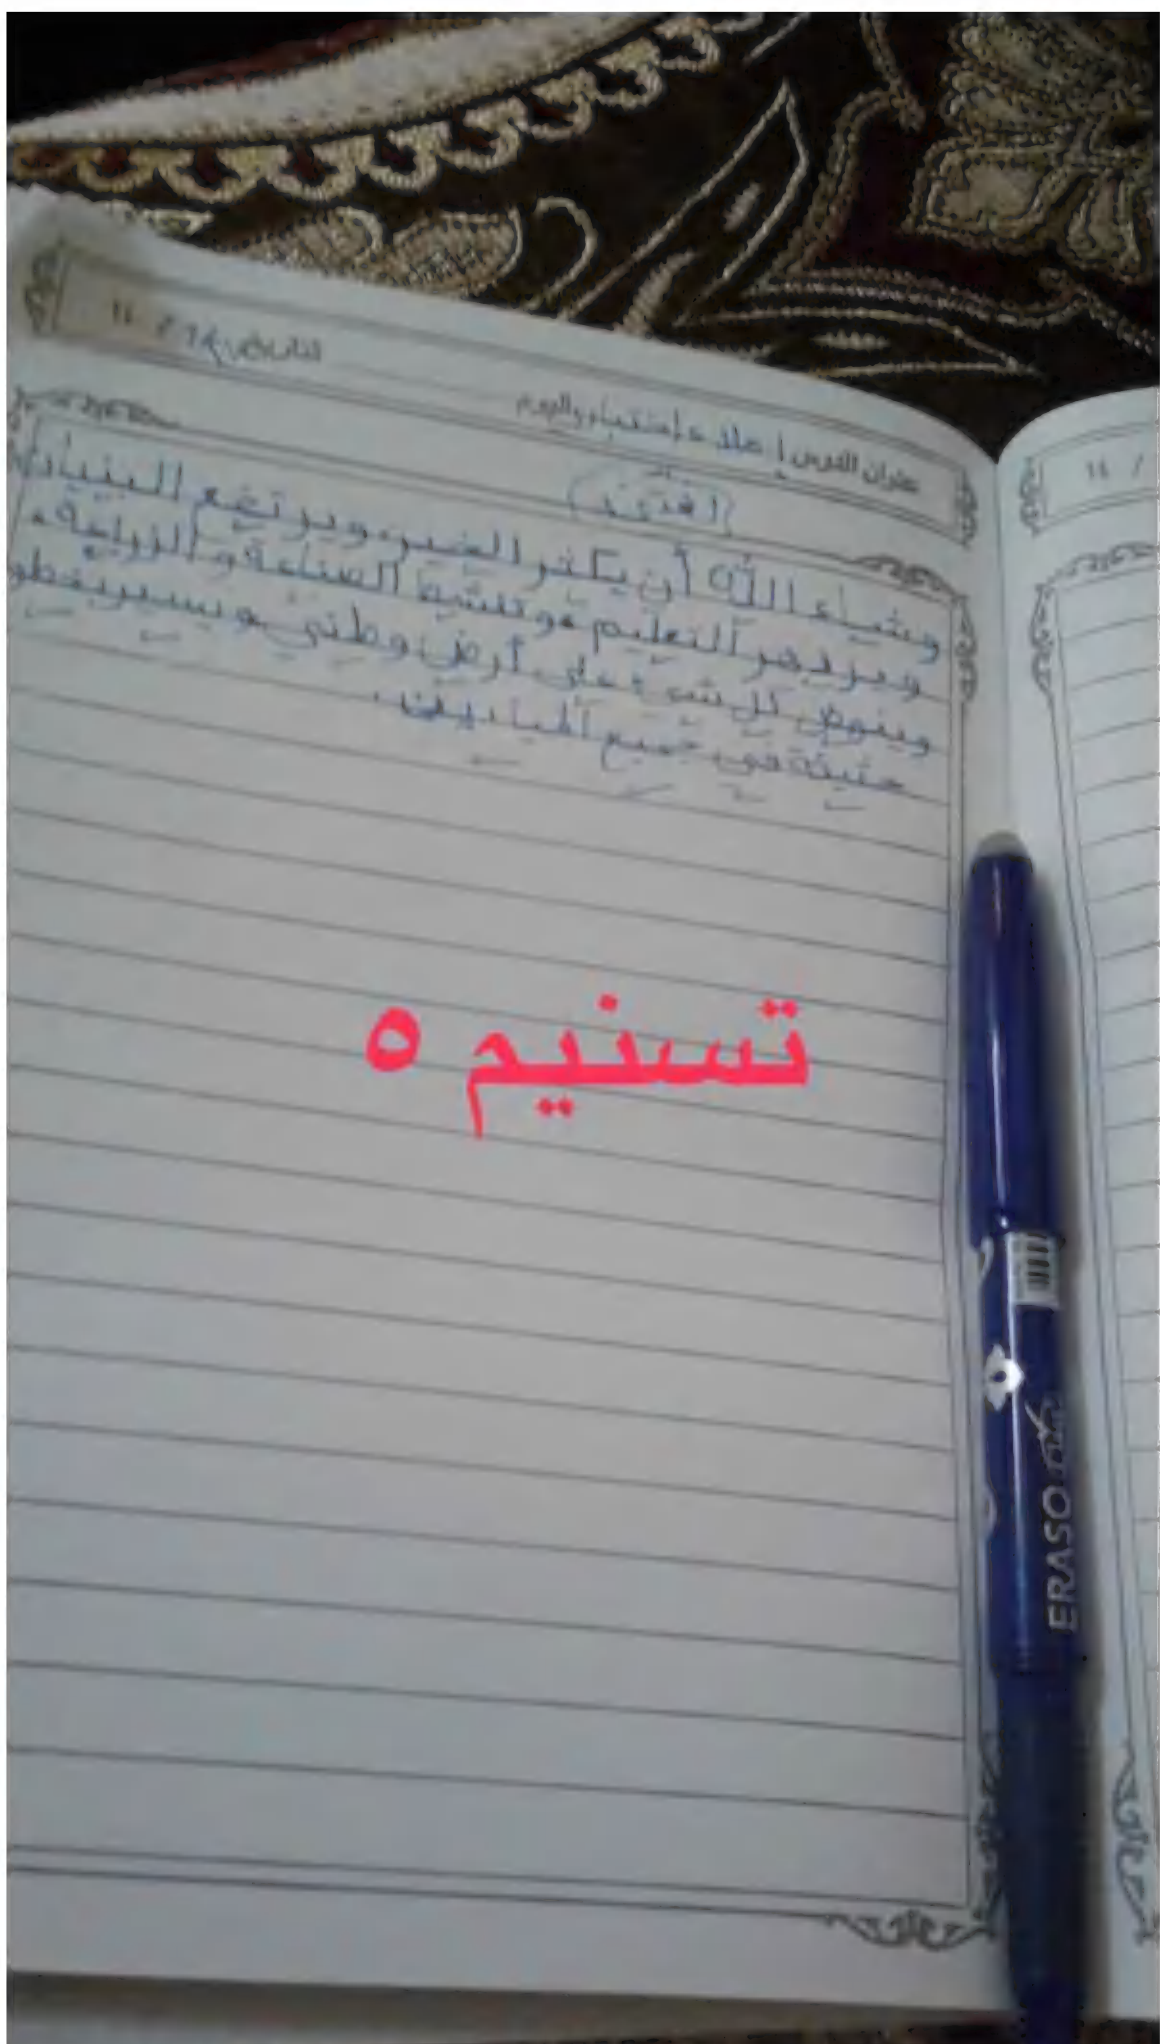 عنوان الدرس إملاء اختباري اليوم
وشاء الله أن يكثر الخير ويرتفع البنيان
ويزدهر التعليم وتنشط الصناعة والزراعة
وينهض كل شيء على أرض وطني ويسير بخطو
حثيثة في جميع الميادين.
تسنيم ٥
ERASO
١٤ /